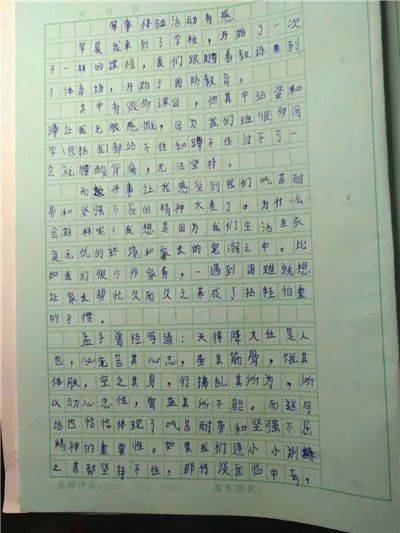 年 月 日
军事体验活动有感
早晨我来到了学校，开始了一次
不一样的课程，我们跟随着教练来到
了体育场，开始了国防教育。
其中有很多课目，但其中站姿和
蹲让我无限感慨，因为我们班很多同
学(包括我)都站不住和蹲不住过不了一
会就腰酸背痛，无法坚持。
而这件事让我感受到我们吃苦耐
劳和坚强不屈的精神太差了。为什么
会这样呢？我想是因为我们生活在衣
食无忧的环境和家长的宠溺之中。比
如我们很少作家务，一遇到困难就想
让家长帮忙久而久之养成了拈轻怕重
的习惯。
孟子曾经写道：天将降大任是人
也，必先苦其心志，劳其筋骨，饿其
体肤，空乏其身，行拂乱其所为，所
以动心忍性，曾益其所不能。而这句
话也恰恰体现了吃苦耐劳和坚强不屈
精神的重要性。如果我们连小小训练
之苦都坚持不住，那将没面临中考，
老师评语： 家长签名：